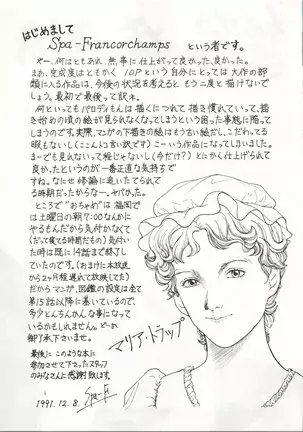 はじめまして
Spa-Francorchamps という者です。
やー、何はともあれ、無事に仕上がって良かった、良かった。
まあ、完成度はともかく 10Pという自分にとっては大作の部
類に入る作品は、今後の状況を考えると もう二度と描けないで
しょう。最初で最後って訳ネ。
何といってもパロディもんは 描くにつれて 描き慣れていって、描
き始めの頃の絵が見られなくなってしまうという困った事態に陥って
しまうのです。実際、マンガの下描きの絵は もう古い絵だし、こだわってる
暇もないし(ここんトコ古い訳ネ) こーいう作品になってしまいました。
まーでも見れないって程じゃないし(今だけ?) とにかく仕上げられて
良かったというのが 一番正直な気持ちで
すね。なにせ 修論に追いたてられて
る時期だったからなー、ヤバかった。
ところで"おちゃめ"は 福岡で
は土曜日の朝7:00なんかに
やるもんだから気付かなくて
(だって寝てる時間だもの) 気付い
た時は既に14話まで終了し
ていたのです。(おまけに本放送
から2ヶ月程遅れて放映してた)
だからマンガ、図鑑の設定は全て
第15話以降に基いているので、
多少とんちんかんな事になって
いるかもしれません。どーか
御了承下さいませ。
最後に このような本に
参加させて下さったスタッフ
のみなさんに感謝致します。
1991.12.8. Spa-F
マリア・トラップ